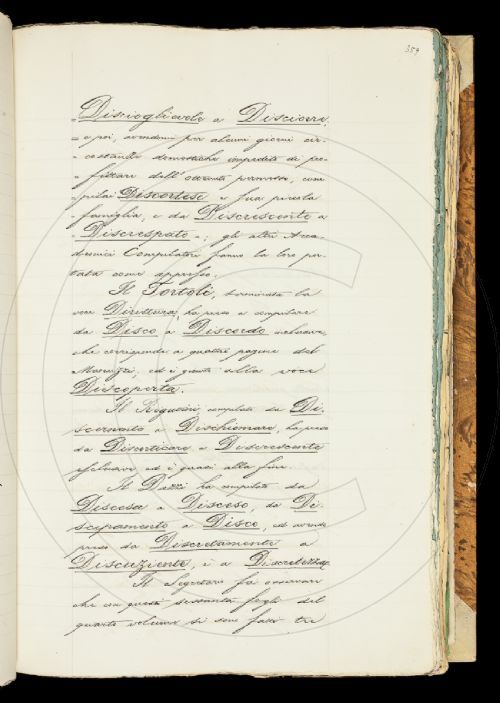 359
= Discioglievole a Disciorre,
= e poi, avendomi per alcuni giorni cir-
= costanze domestiche impedito di pro-
= fittare dell'ottenuto permesso, com-
= pilai Discortese e sua piccola
= famiglia, e da Discrescente a
= Discrespato =; gli altri Acca-
demici Compilatori fanno la loro por-
tata come appresso.
Il Tortoli, terminata la
voce Dirittura, ha preso a compilare
da Disco a Discordo inclusive,
che corrisponde a quattro pagine del
Manuzzi, ed è giunto alla voce
Discoperta.
Il Rigutini, compilato da Di-
scernente a Dischiomare, ha preso
da Disenticare a Discrescente
esclusive ed è quasi alla fine.
Il Dazzi ha compilato da
Discesa a Disceso, da Di-
scepamento a Disco, ed avendo
preso da Discretamente a
Discuziente, è a Discretezza.
Il Segretario fa osservare
che con questi sessanta fogli del
quarto volume si sono fatti tre